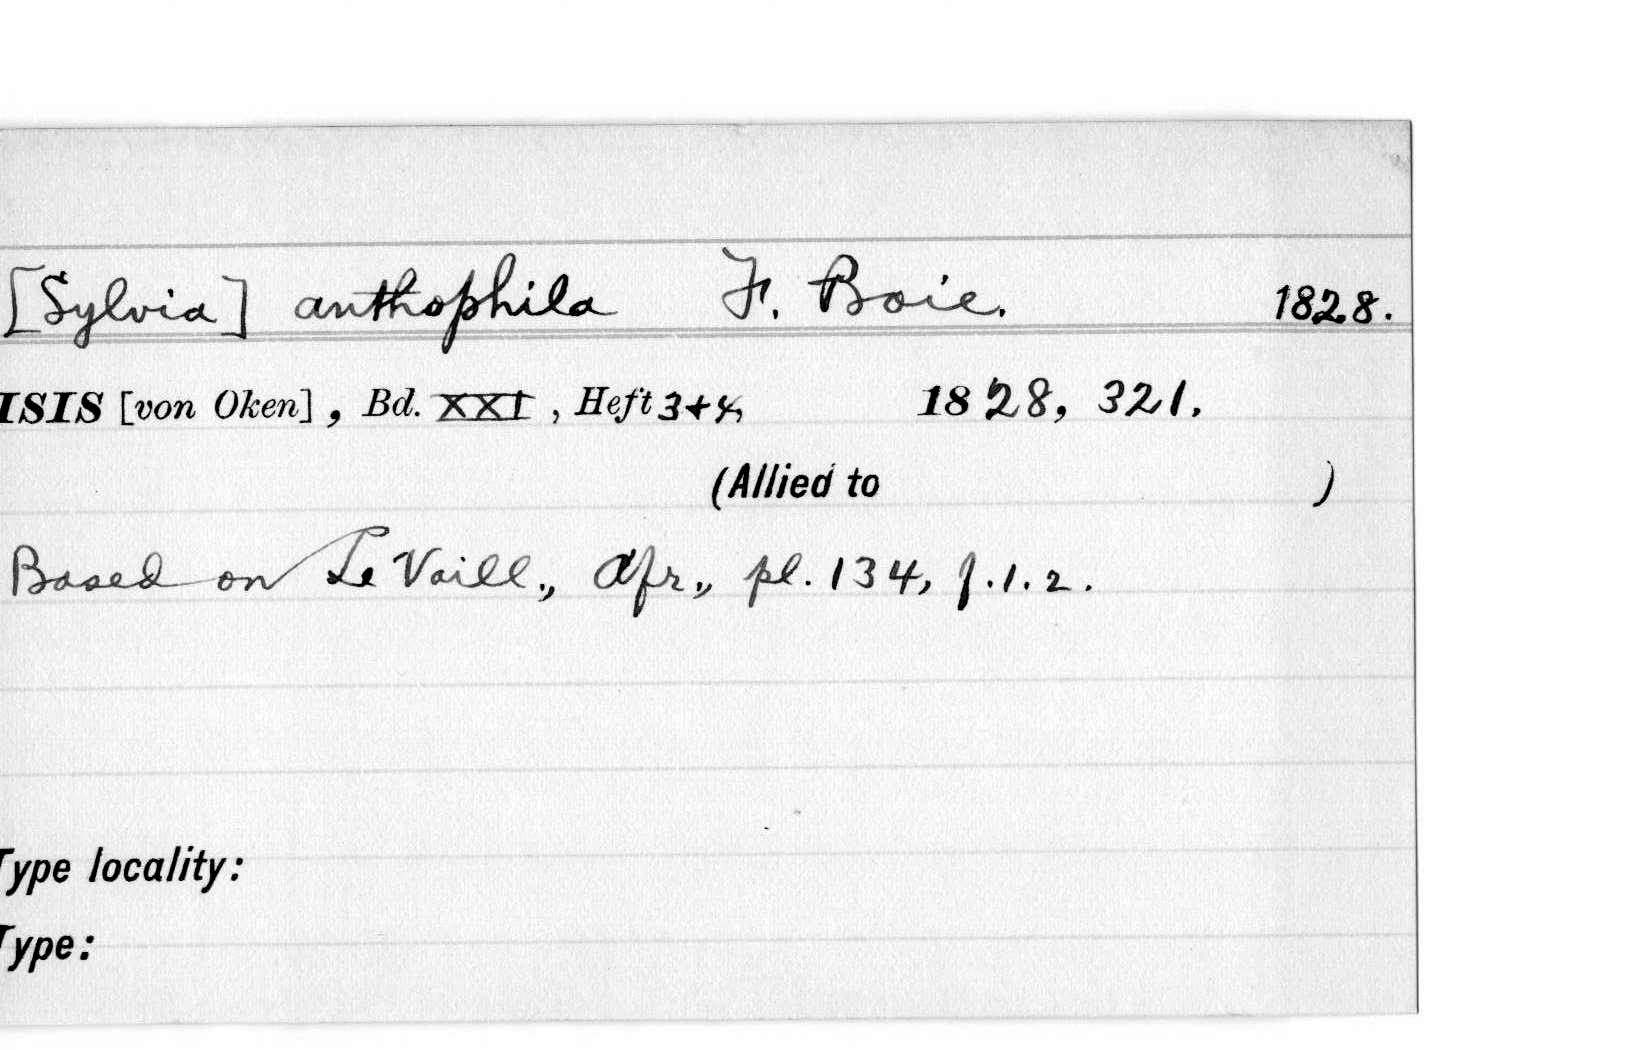 [Sylvia] anthophila F. Boie. 1828.
ISIS [von Oken], Bd. XXI, Heft 3+4, 1828, 321.
(Allied to )
Based on Le Vaill., Afr., pl. 134, f.1.2.
Type locality:
Type: